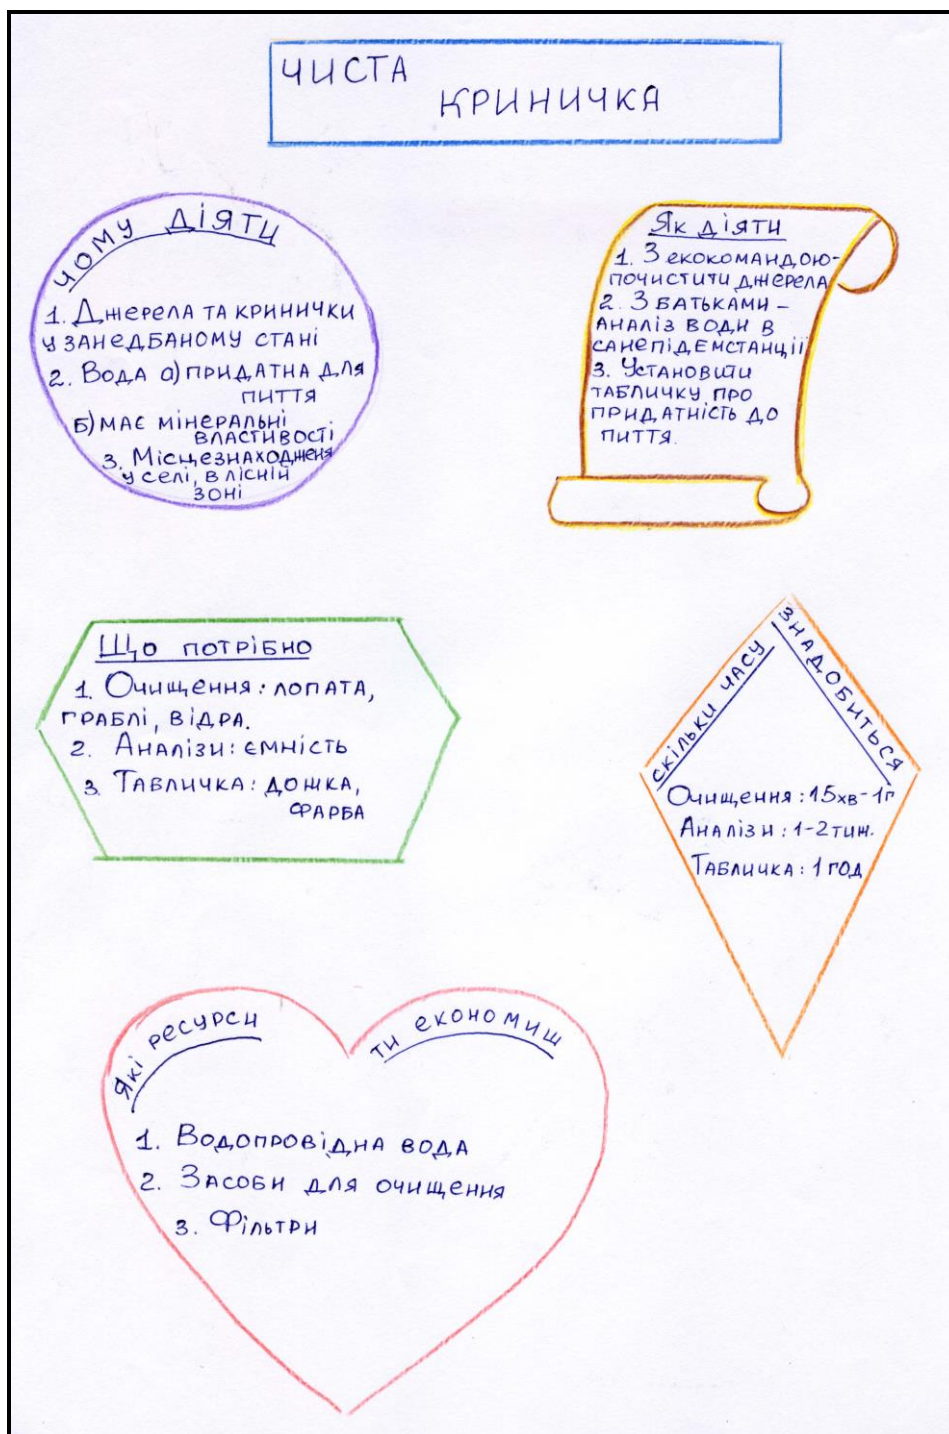 ЧИСТА
КРИНИЧКА
ЧОМУ ДІЯТИ
1. ДЖЕРЕЛА ТА КРИНИЧКИ
У ЗАНЕДБАНОМУ СТАНІ
2. ВОДА а) ПРИДАТНА ДЛЯ
ПИТТЯ
Б) МАЄ МІНЕРАЛЬНІ
ВЛАСТИВОСТІ
3. МІСЦЕЗНАХОДЖЕНЯ
У СЕЛІ, В ЛІСНІЙ
ЗОНІ
ЯК ДІЯТИ
1. З ЕКОКОМАНДОЮ-
ПОЧИСТИТИ ДЖЕРЕЛА
2. З БАТЬКАМИ –
АНАЛІЗ ВОДИ В
САНЕПІДЕМСТАНЦІЇ
3. УСТАНОВИТИ
ТАБЛИЧКУ ПРО
ПРИДАТНІСТЬ ДО
ПИТТЯ.
ЩО ПОТРІБНО
1. ОЧИЩЕННЯ: ЛОПАТА,
ГРАБЛІ, ВІДРА.
2. АНАЛІЗИ: ЄМНІСТЬ
3. ТАБЛИЧКА: ДОШКА,
ФАРБА
СКІЛЬКИ ЧАСУ
ЗНАДОБИТЬСЯ
ОЧИЩЕННЯ: 15хв-1г
АНАЛІЗИ: 1-2 тиж.
ТАБЛИЧКА: 1 ГОД
ЯКІ РЕСУРСИ
ТИ ЕКОНОМИШ
1. ВОДОПРОВІДНА ВОДА
2. ЗАСОБИ ДЛЯ ОЧИЩЕННЯ
3. ФІЛЬТРИ